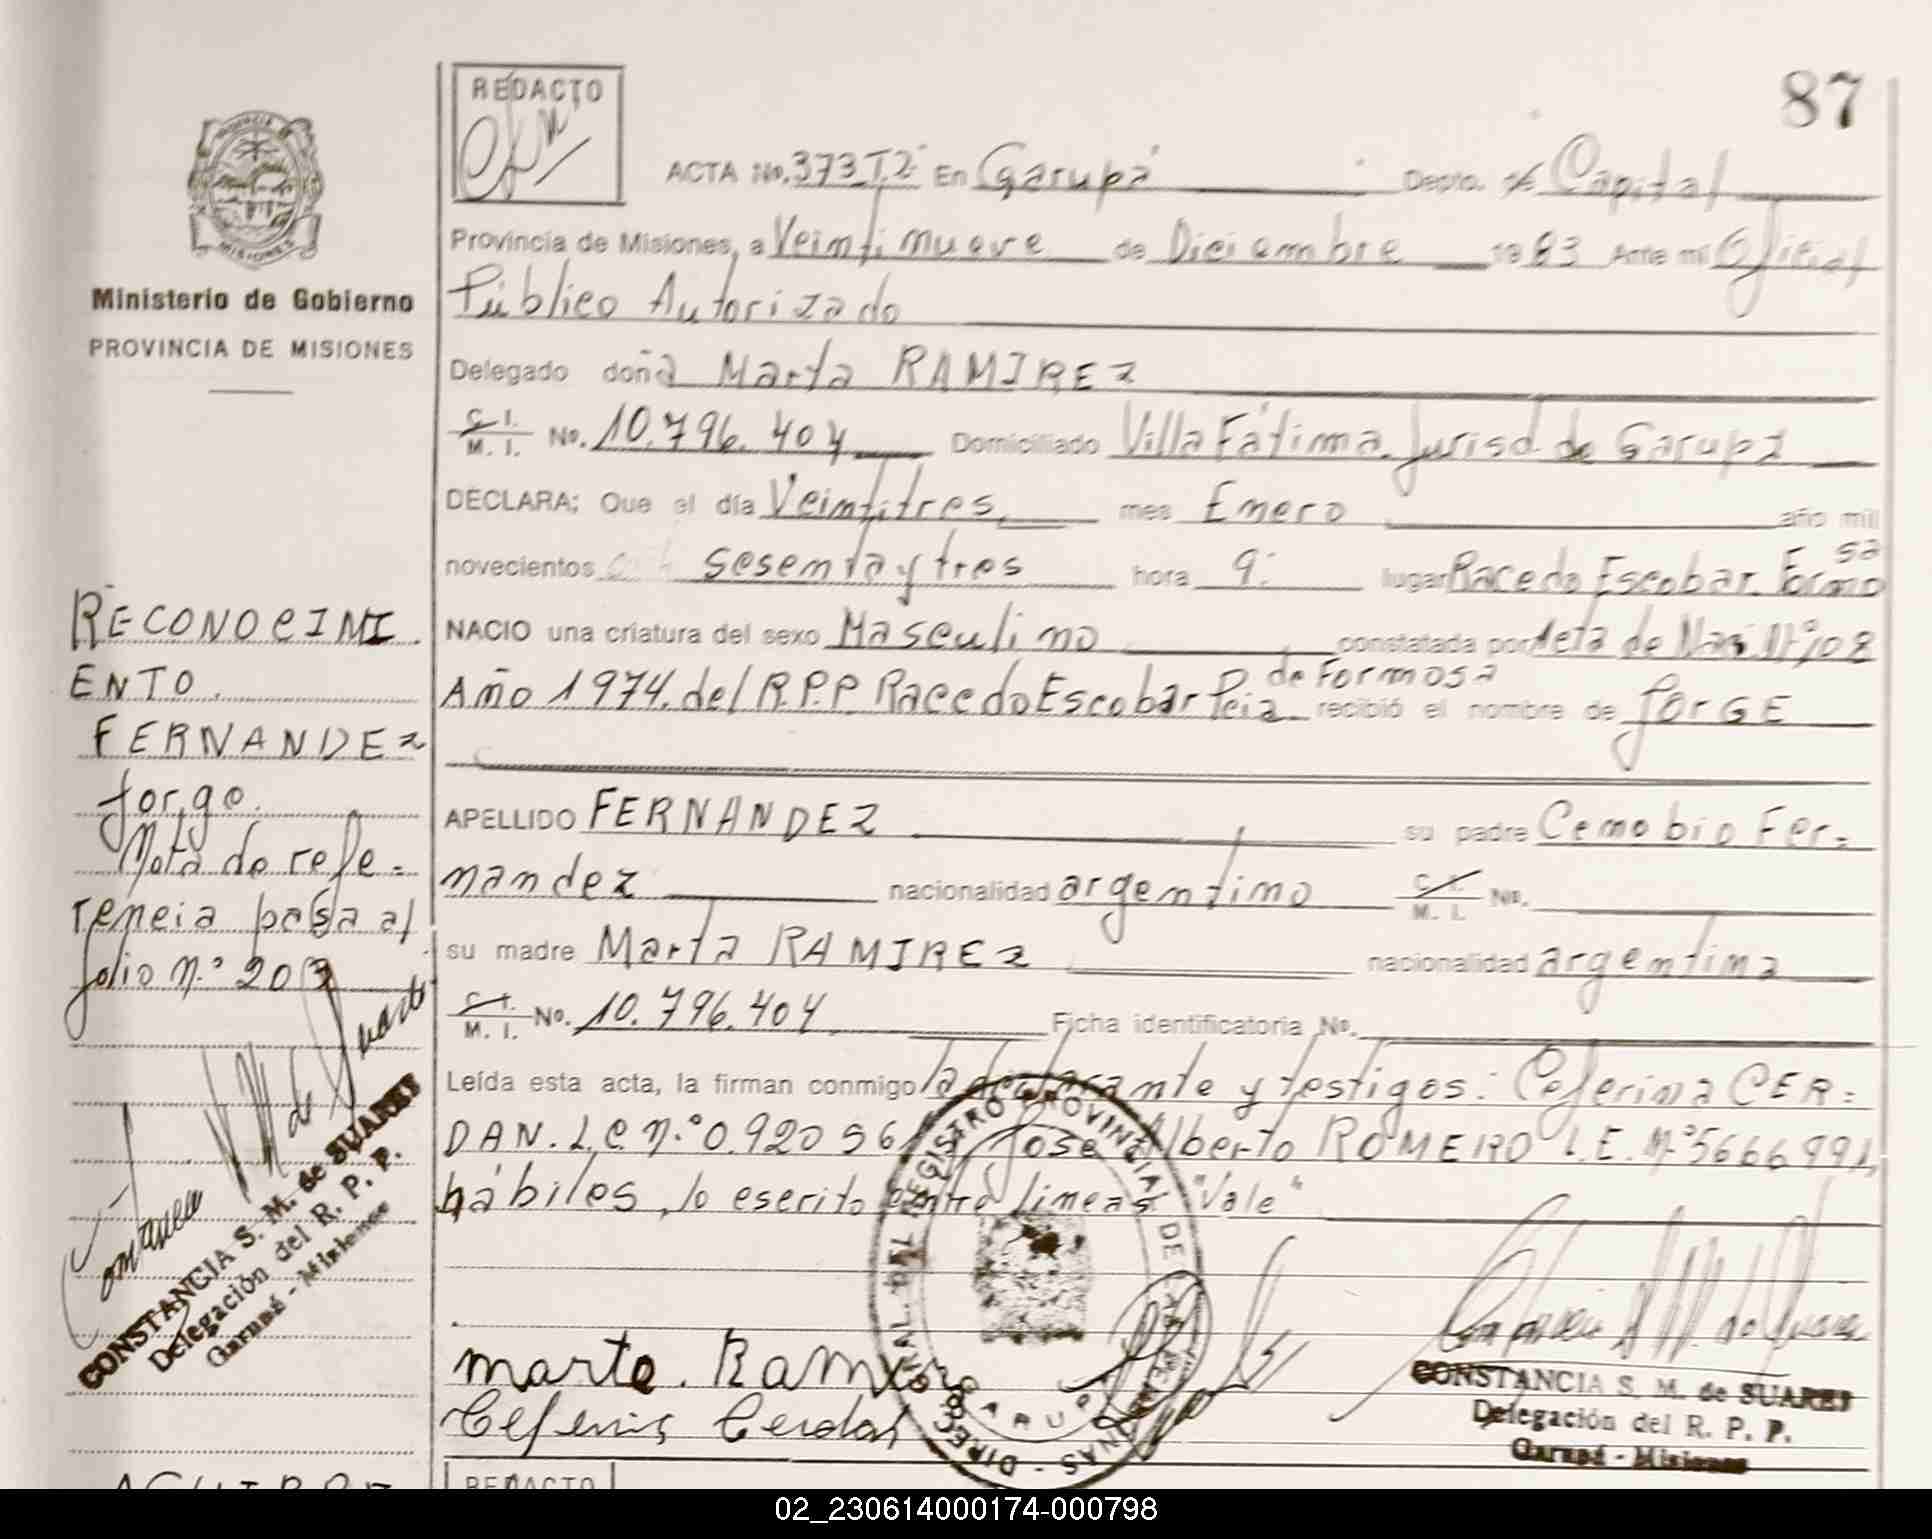 87
REDACTO
ACTA No. 373 T.2 En Garupá Depto. Capital
PROVINCIA DE
MISIONES
Provincia de Misiones, a Veintinueve de Diciembre 1983 Ante mi Oficial
Público Autorizado
Ministerio de Gobierno
PROVINCIA DE MISIONES
Delegado doña Marta RAMIREZ
C. I.
M. I. No. 10.796.404 Domiciliado Villa Fátima. Jurisd. de Garupá
DECLARA; Que el día Veintitres, mes Enero año mil
novecientos sesenta y tres hora 9: lugar Racedo Escobar. Formosa
NACIO una criatura del sexo Masculino constatada por Acta de Nac. Nº 108
Año 1974. del R.P.P. Racedo Escobar Pcia de Formosa recibió el nombre de JORGE
APELLIDO FERNANDEZ su padre Cenobio Fer=
nandez nacionalidad argentino C. I.
M. I. No.
su madre Marta RAMIREZ nacionalidad argentina
C. I.
M. I. No. 10.796.404 Ficha identificatoria No.
Leída esta acta, la firman conmigo la declarante y testigos: Ceferina CER=
DAN. L.C. N.º 0.920 56 José Alberto ROMERO L.E. Nº 5666991,
hábiles, lo escrito entre lineas "Vale"
RECONOCIMI
ENTO.
FERNANDEZ
Jorge.
Nota de refe=
rencia pasa al
folio N.º 203
CONSTANCIA S. M. de SUAREZ
Delegación del R. P. P.
Garupá - Misiones
REGISTRO PROVINCIAL DE
GARUPA
marta. Ramirez
Ceferina Cerdan
CONSTANCIA S. M. de SUAREZ
Delegación del R. P. P.
Garupá - Misiones
AGUIRRE
REDACTO
02_230614000174-000798